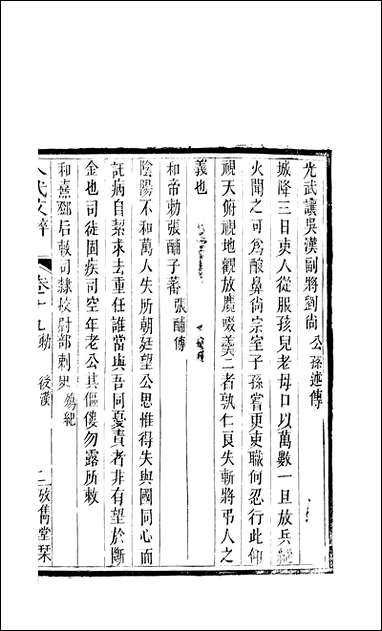 光武讓吳漢副將劉尚 公孫述傳
城降三日吏人從服孩兒老母口以萬數一旦放兵縱
火聞之可為酸鼻尚宗室子孫嘗更吏職何忍行此仰
視天俯視地觀放麑啜羹二者孰仁良失斬將弔人之
義也
和帝勑張酺子蕃 張酺傳
陰陽不和萬人失所朝廷望公思惟得失與國同心而
託病自絜求去重任誰當與吾同憂責者非有望於斷
金也司徒固疾司空年老公其傴僂勿露所敕
和熹鄧后報司隸校尉部刺史 殤紀
八代文粹 卷十九 勅 後漢 攷雋堂栞